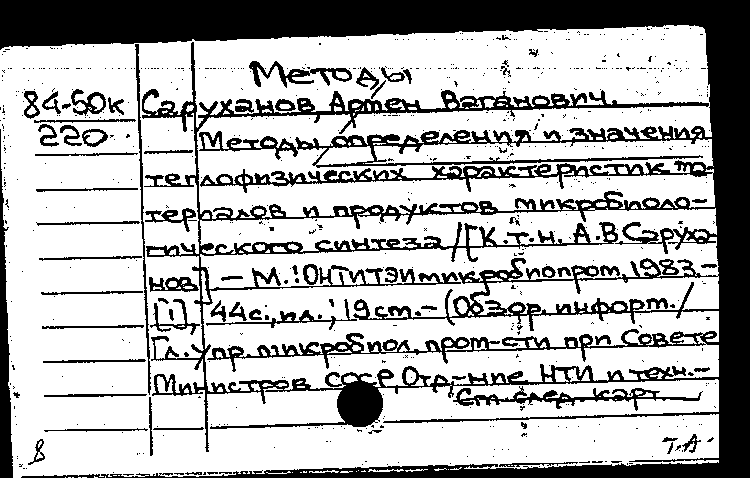 Методы
84-50к Саруханов, Артен Ваганович.
220 Методы определения и значения
теплофизических характеристик ма-
териалов и продуктов микробиоло-
гического синтеза /[К.т.н. А.В Саруха-
нов] – М.: ОНТИТЭИмикробиопром, 1983.–
[1], 44с., ил.; 19см.– (Обзор. информ./
Гл. упр. микробиол. пром-сти при Совете
Министров СССР, Отд-ние НТИ и техн.–
См. след. карт.
8 Т.А.